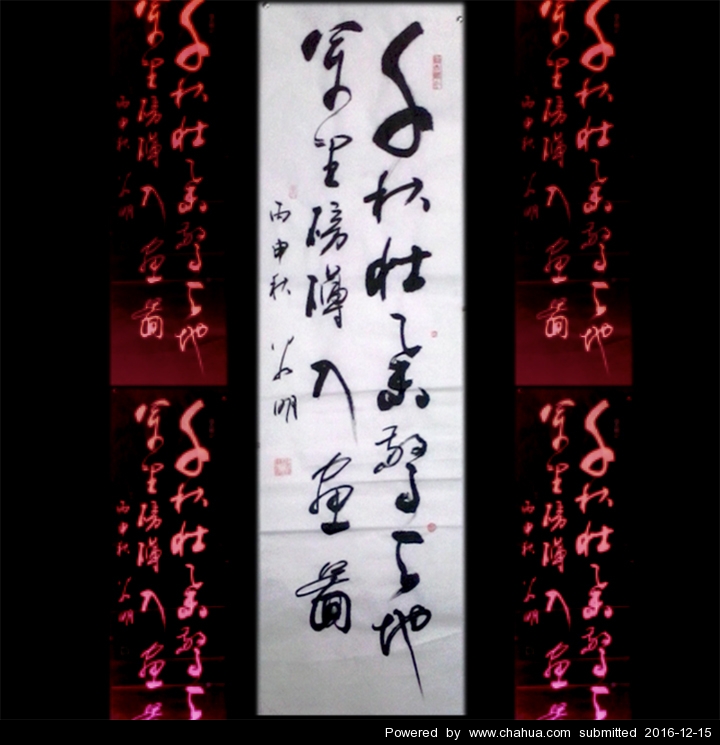 千秋壮驚天地
萬里磅礴入畫圖
丙申秋 明
Powered by www.chahua.com submitted 2016-12-15